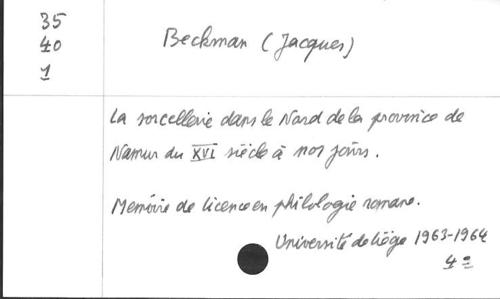 35
40
1
Beckman (Jacques)
La sorcellerie dans le Nord de la province de
Namur du XVI siècle à nos jours.
Mémoire de licence en philologie romane.
Université de Liège 1963-1964
4º